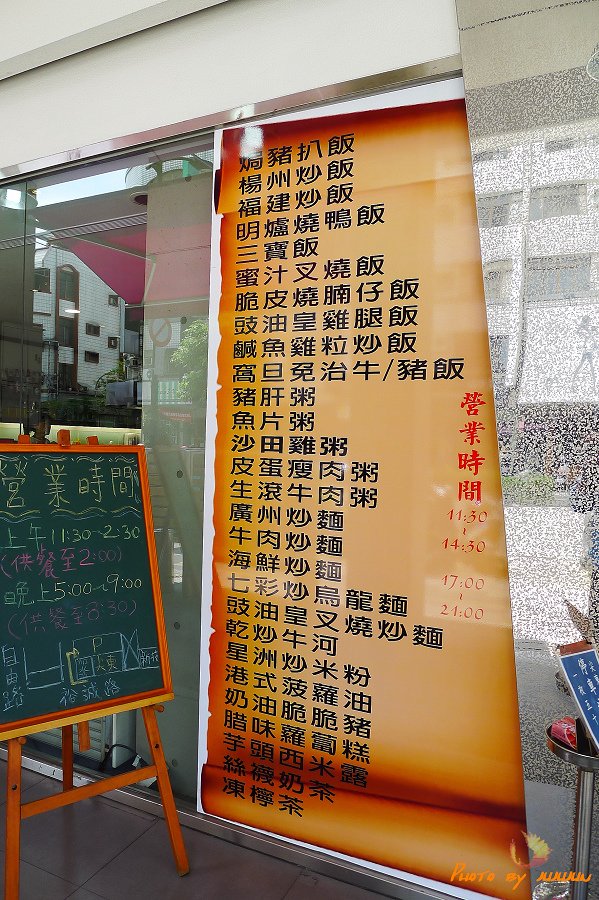 焗豬扒飯
楊州炒飯
福建炒飯
明爐燒鴨飯
三寶飯
蜜汁叉燒飯
脆皮燒腩仔飯
豉油皇雞腿飯
鹹魚雞粒炒飯
窩旦免治牛/豬飯
豬肝粥
魚片粥
沙田雞粥
皮蛋瘦肉粥
生滾牛肉粥
廣州炒麵
牛肉炒麵
海鮮炒麵
七彩炒烏龍麵
豉油皇叉燒炒麵
乾炒牛河
星洲炒米粉
港式菠蘿油
奶油脆脆豬
腊味蘿蔔糕
芋頭西米露
絲襪奶茶
凍檸茶
營業時間
11:30
~
14:30
17:00
~
21:00
營業時間
上午11:30-2:30
(供餐至2:00)
晚上5:00~9:00
(供餐至8:30)
自由路
裕誠路
P
PHOTO BY MIMIMIN